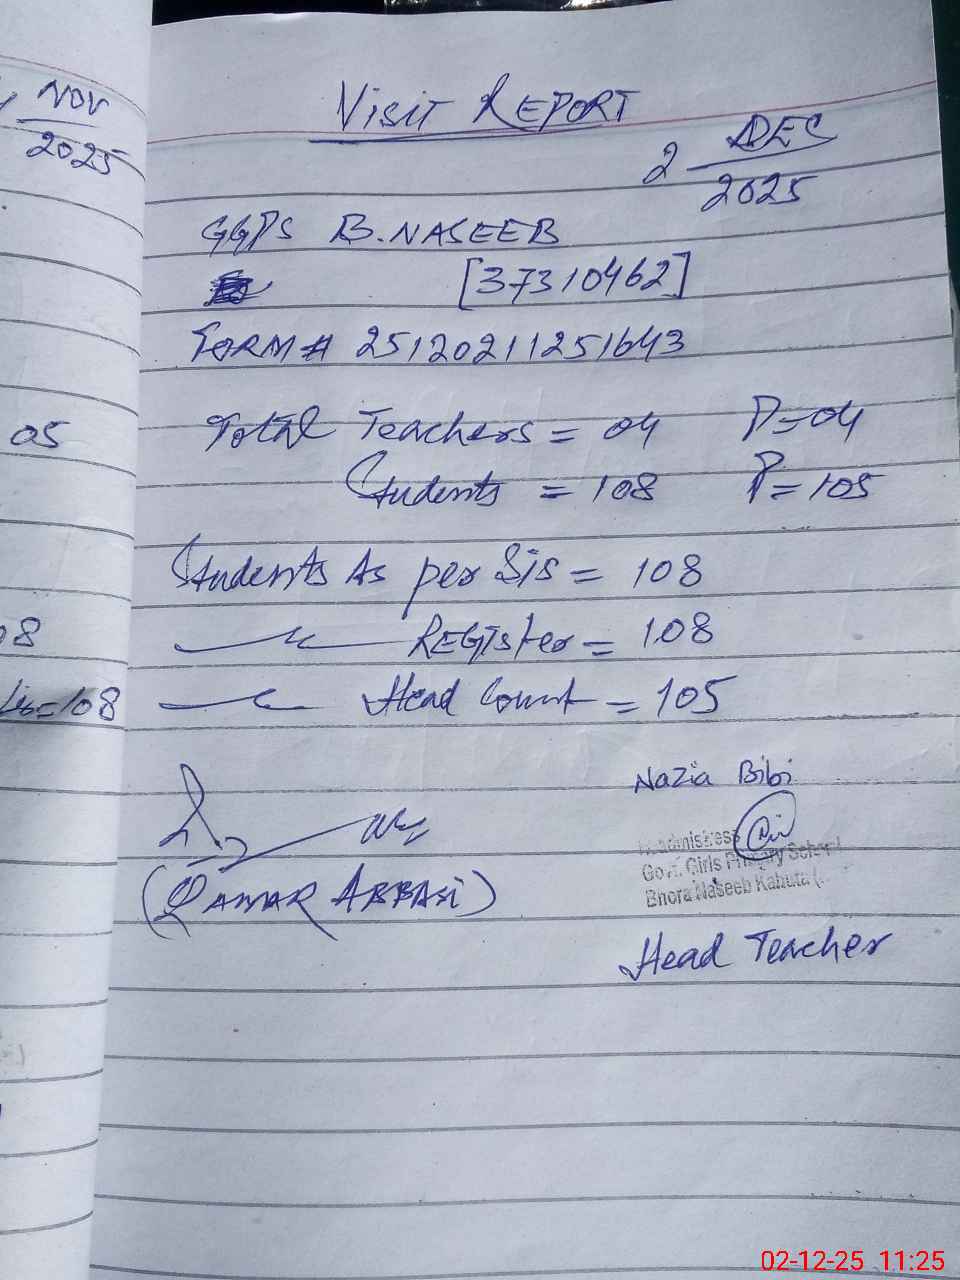 NOV
2025
05
08
Sis=108
VISIT REPORT
2 DEC
2025
GGPS B.NASEEB
[37310462]
FORM# 25120211251643
Total Teachers = 04 P=04
Students = 108 P=105
Students As per Sis = 108
REGISter = 108
Head Count = 105
Nazia Bibi
Headmistress
Govt. Girls Primary School
Bhora Naseeb Kahuta
(QAMAR ABBASI)
Head Teacher
02-12-25 11:25